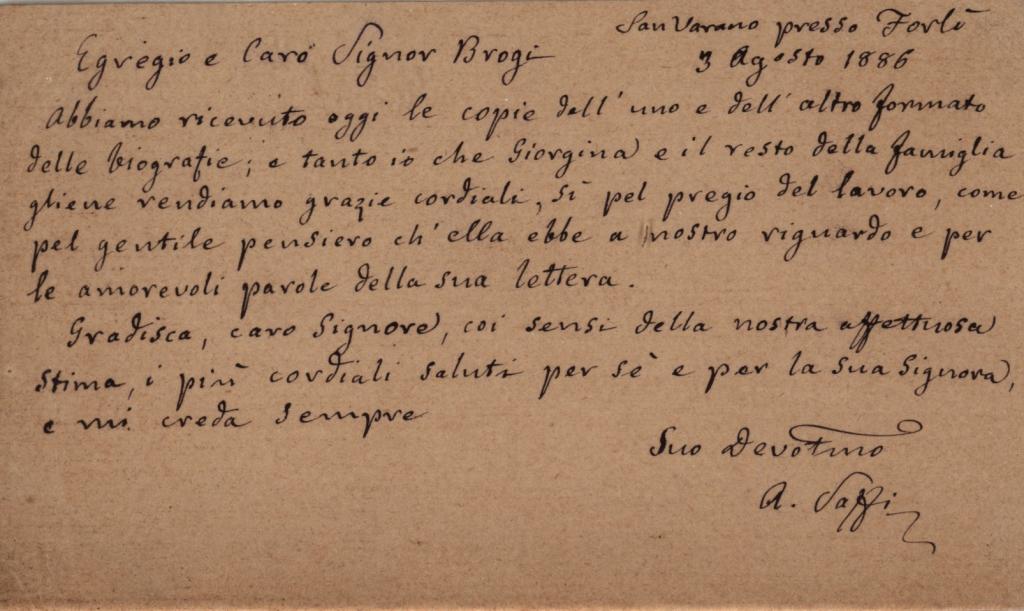 San Varano presso Forlì
3 Agosto 1886
Egregio e Caro Signor Brogi
Abbiamo ricevuto oggi le copie dell' uno e dell' altro formato
delle biografie; e tanto io che Giorgina e il resto della famiglia
gliene rendiamo grazie cordiali, sì pel pregio del lavoro, come
pel gentile pensiero ch' ella ebbe a nostro riguardo e per
le amorevoli parole della sua lettera.
Gradisca, caro Signore, coi sensi della nostra affettuosa
stima, i più cordiali saluti per sè e per la sua Signora,
e mi creda sempre
Suo Devotmo
A. Saffi